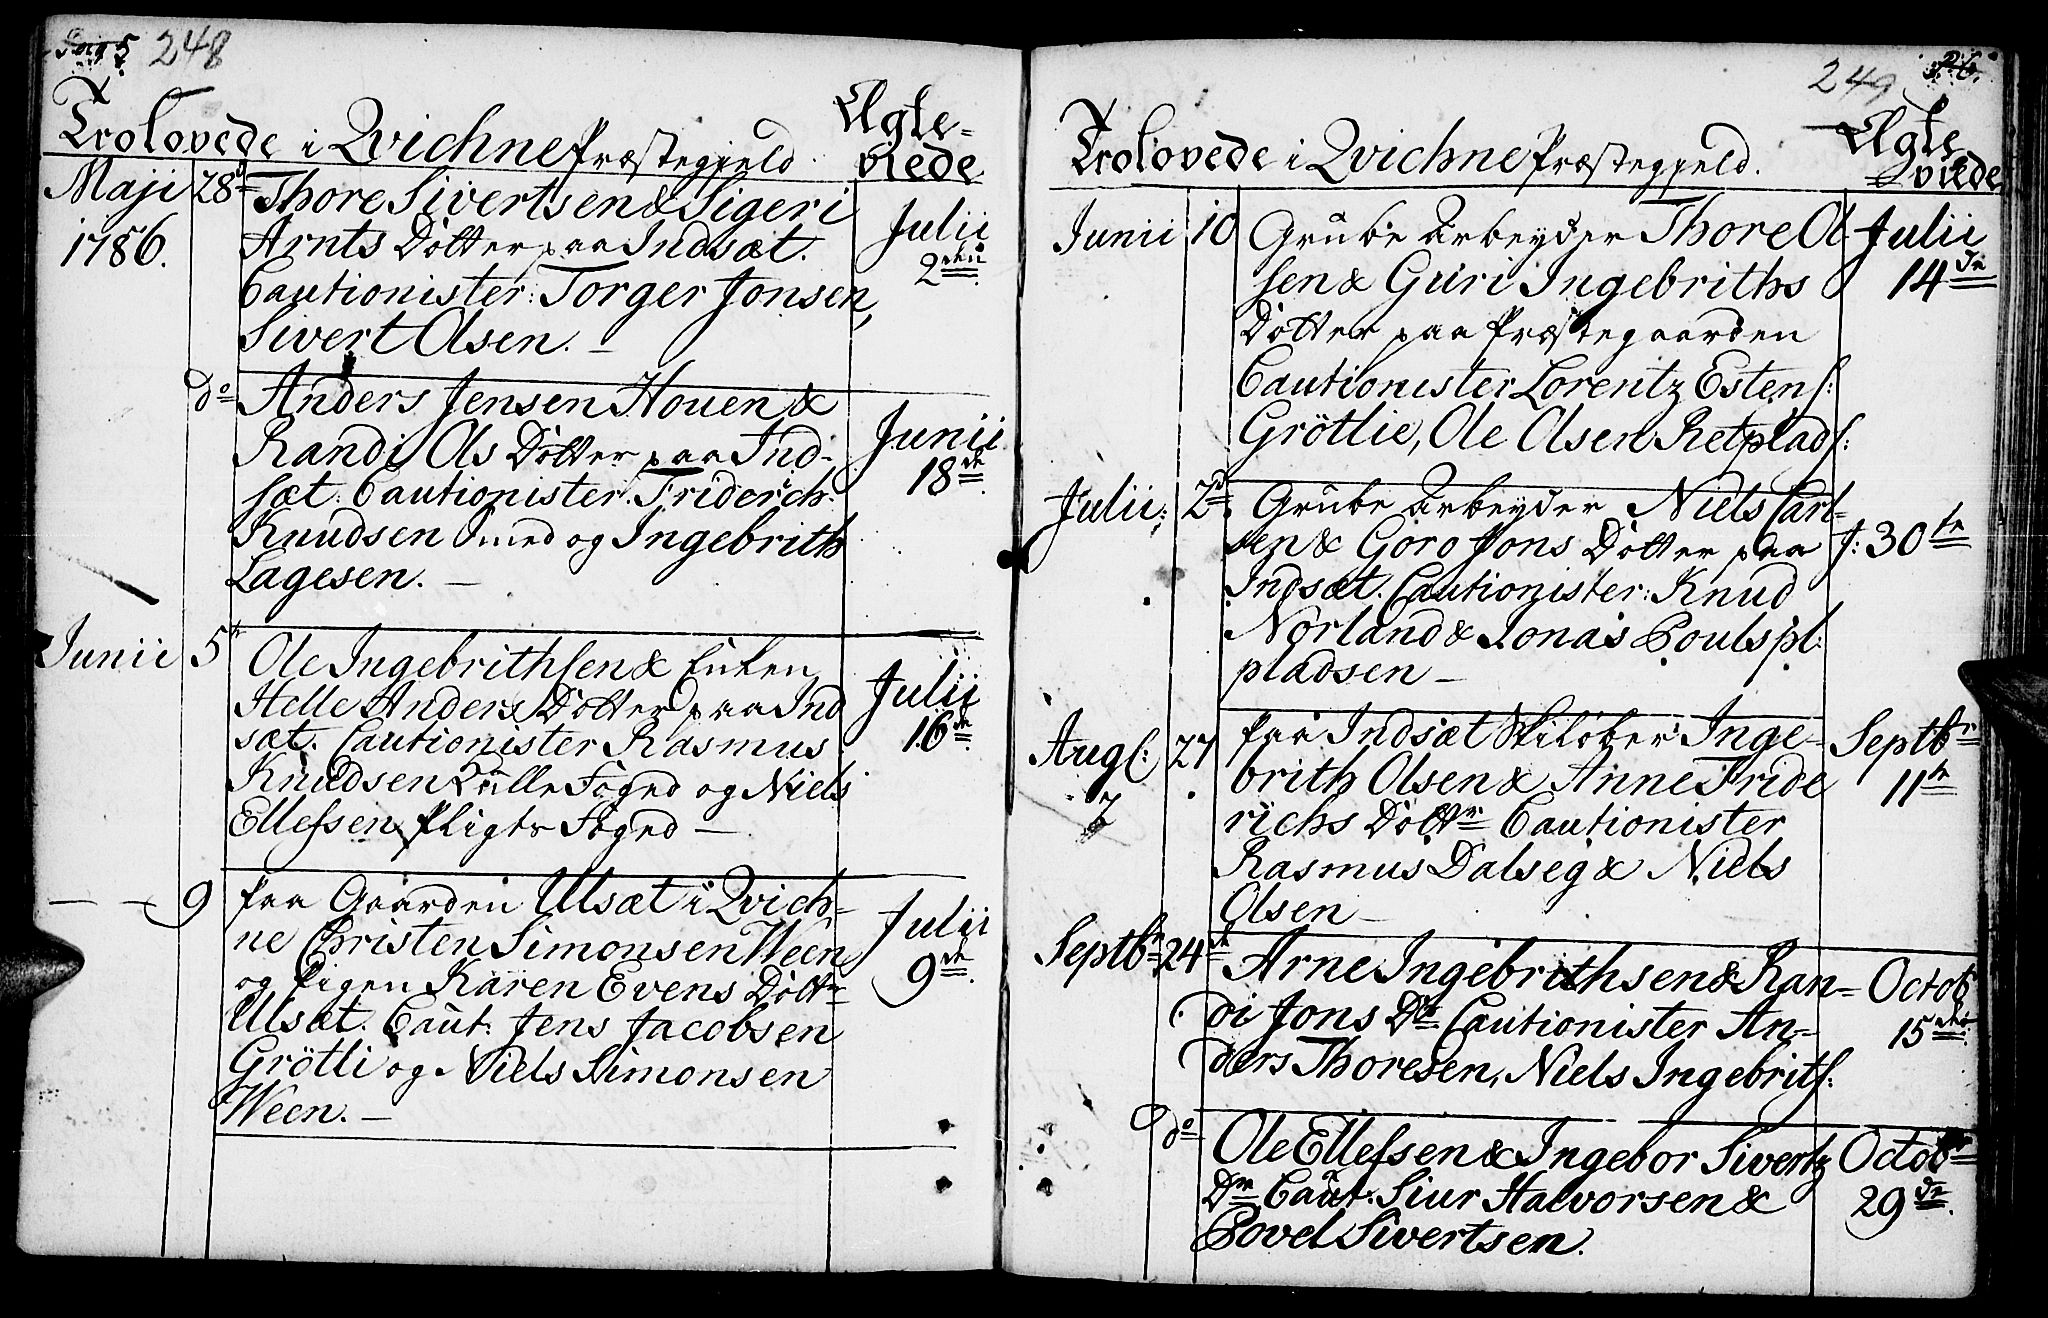 248
Trolovede i Qvichne Præstegjeld.
Ægte-
viede
Maji 28d
1786.
Thore Sivertsen & Sigeri
Arnts Dotter paa Indsæt.
Cautionister: Torger Jonsen,
Sivert Olsen. –
Julii
2den
do
Anders Jensen Houen &
Randi Ols Dotter paa Ind-
sæt. Cautionister. Friderich
Knudsen Smed og Ingebrith
Lagesen. –
Junii
18de
Junii 5te
Ole Ingebrithsen & Enken
Helle Anders Dotter paa Ind
sæt. Cautionister Rasmus
Knudsen Foged og Niels
Ellefsen Pligts Foged –
Julii
16de
– – 9
Paa Gaarden Ulsæt i Qvich-
ne Christen Simonsen Ween
og Pigen Karen Evens Dottr
Ulsæt. Caut. Jens Jacobsen
Grötli og Niels Simonsen
Ween. –
Julii
9de
249
Trolovede i Qvichne Præstegjeld.
Ægte
viede
Junii 10
Grube Arbeyder Thore Ol
sen & Guri Ingebriths
Dotter paa Præstegaarden
Cautionister Lorentz Estens:
Gröttlie, Ole Olsen Retplads:
Julii
14de
Julii: 2d
Grube Arbeyder Niels Carl-
sen & Goro Jons Dotter paa
Indsæt. Cautionister: Knud
Norland & Jonas Poulspl:
pladsen –
J: 30te
Augs: 27
Paa Indsæt Skilöber Inge-
brith Olsen & Anne Fride
richs Dottr Cautionister
Rasmus Dalseg & Niels
Olsen –
Septbr
11te
Septbr 24de
Arne Ingebrithsen & Ran-
di Jons Dr Cautionister An-
ders Thoresen, Niels Ingebrits:
Octob
15den
do
Ole Ellefsen & Ingebor Sivertz
Dr Caut. Siur Halvorsen &
Povel Sivertsen.
Octobr
29de